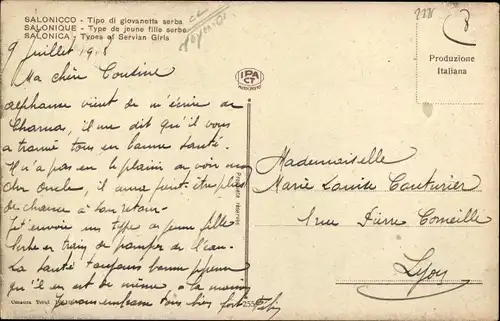 SALONICCO - Tipo di giovanetta serba
SALONIQUE - Type de jeune fille serbe
SALONICA - Types of Servian Girls
9 Juillet 19
Ma chère Cousine
Alphonse vient de m'écrire de
il me dit qu'il vous
a trouvé tous en bonne santé.
Il n'a pas eu le plaisir de voir mon
cher Oncle, il aura peut-être plus
de chance à son retour.
Je t'envoie un type de jeune fille
serbe en train de pomper de l'eau.
La santé toujours bonne
qu'il en est de même à la maison
Je vous embrasse tous bien fort
IPA
CT
Proprietà riservata
2225
Produzione
Italiana
Mademoiselle
Marie Louise Couturier
1 rue Pierre Corneille
Lyon